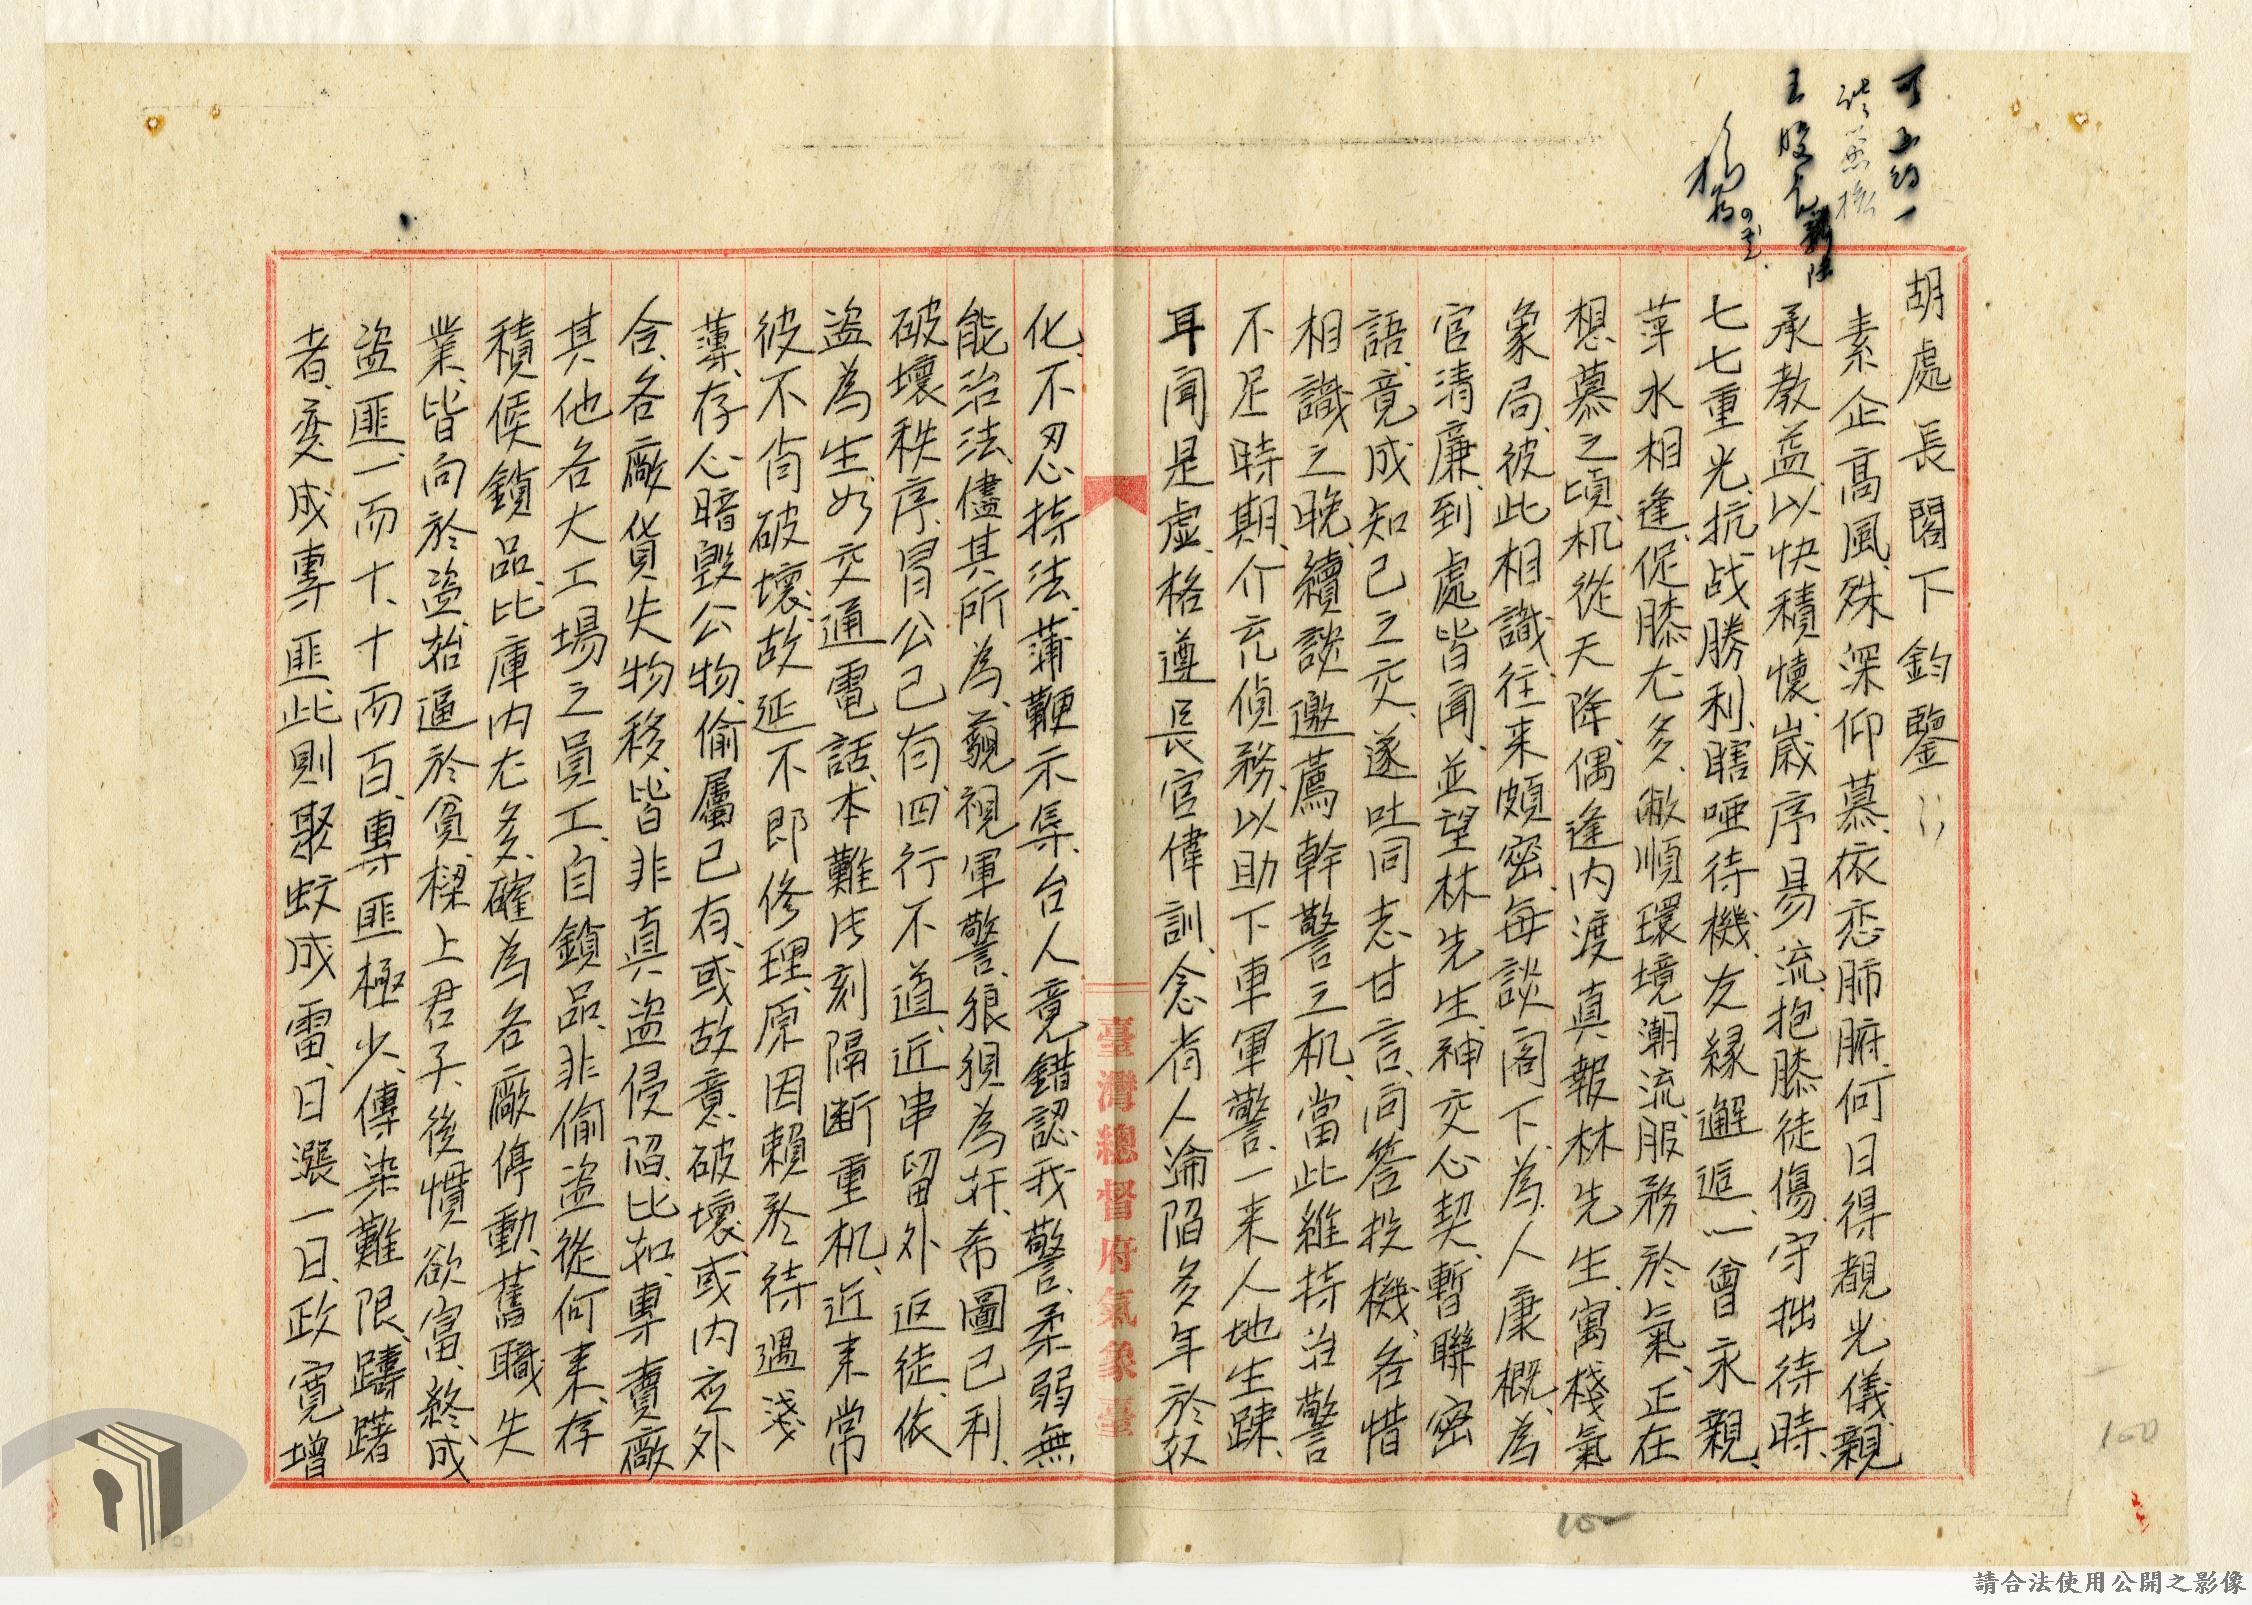 胡處長閣下鈞鑒：
素企高風、殊深仰慕、依恋肺腑、何日得覩光儀、親
承教益、以快積懷、歲序易流、抱膝徒傷、守拙待時、
七七重光、抗战勝利、瞎唖待機、友緣邂逅、一曾永親、
萍水相逢、促膝尤多、敝順環境潮流、服務於氣、正在
想慕之頃、机從天降、偶逢內渡真報林先生、寓棧氣
象局、彼此相識、往来頗密、每談閣下、為人康概、為
官清廉、到處皆聞、並望林先生、神交心契、暫聯密
語、竟成知己之交、遂吐同志甘言、问答投機、各惜
相識之晚、續談邀薦幹警之机、當此維持治警
不足時期、介充偵務、以助下車軍警、一来人地生踈、
耳聞是虛、格遵長官偉訓、念省人淪陷多年、於奴
化、不忍持法、蒲鞭示辱、台人竟錯認我警、柔弱無
能治法、儘其所為、藐視軍警、狼狽為奸、希圖己利、
破壞秩序、冒公己有、四行不道、近串留外返徒、依
盜為生、如交通電話、本難片刻隔断重机、近来常
彼不肖破壞、故延不即修理、原因賴於待遇淺
薄、存心暗毀公物、偷屬己有、或故意破壞、或內应外
合、各廠貨失物移、皆非真盜侵陷、比如、專賣廠
其他各大工場之員工、自鎖品、非偷盜從何来、存
積候鎖品、比庫內尤多、確為各廠停動、舊職失
業、皆向於盜、始逼於貧、樑上君子、後慣欲富、終成
盜匪、一而十、十而百、專匪極少、傳染難限、躊躇
者、変成專匪、此則聚蚊成雷、日漲一日、政寬增
臺灣總督府氣象臺
100
請合法使用公開之影像